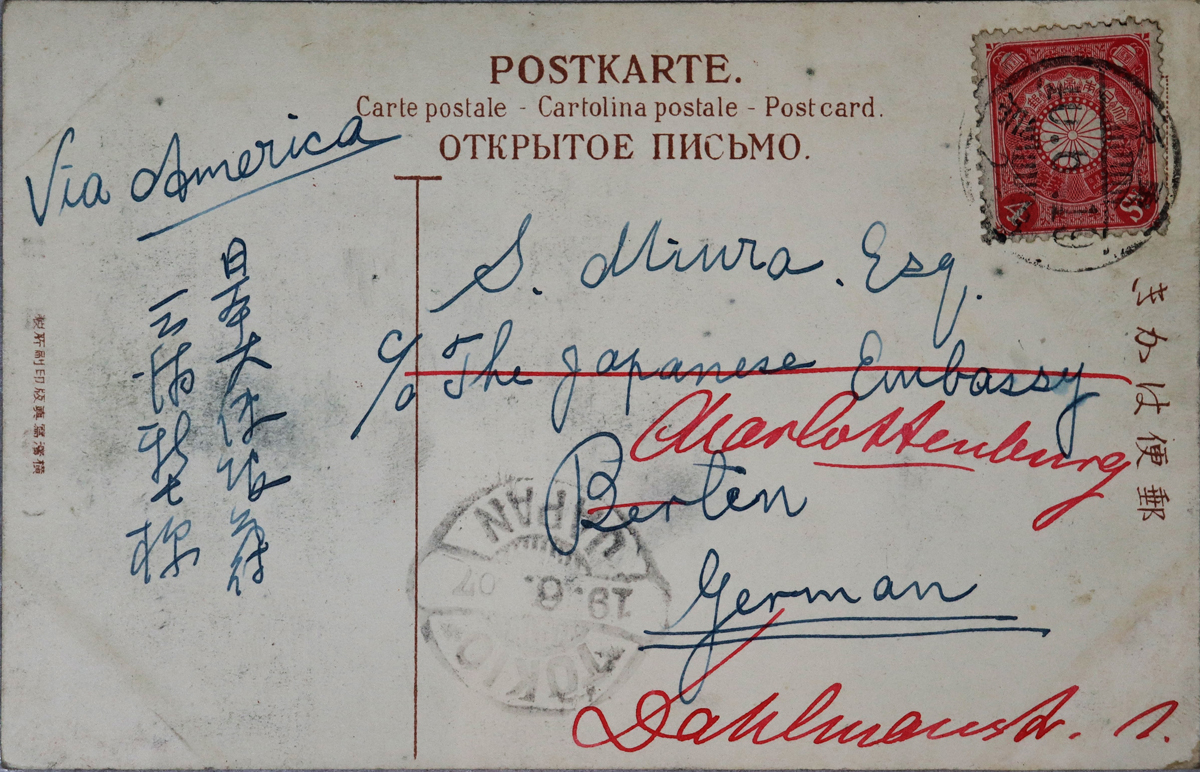 POSTKARTE.
Carte postale - Cartolina postale - Post card.
ОТКРЫТОЕ ПИСЬМО.
Via America
4
S. Miura. Esq.
c/o The Japanese Embassy
Charlottenburg
Berlin
German
Dahlmannstr. 1.
日本大使館
三浦新七様
きかは便郵
TOKIO
19.6.07
JAPAN